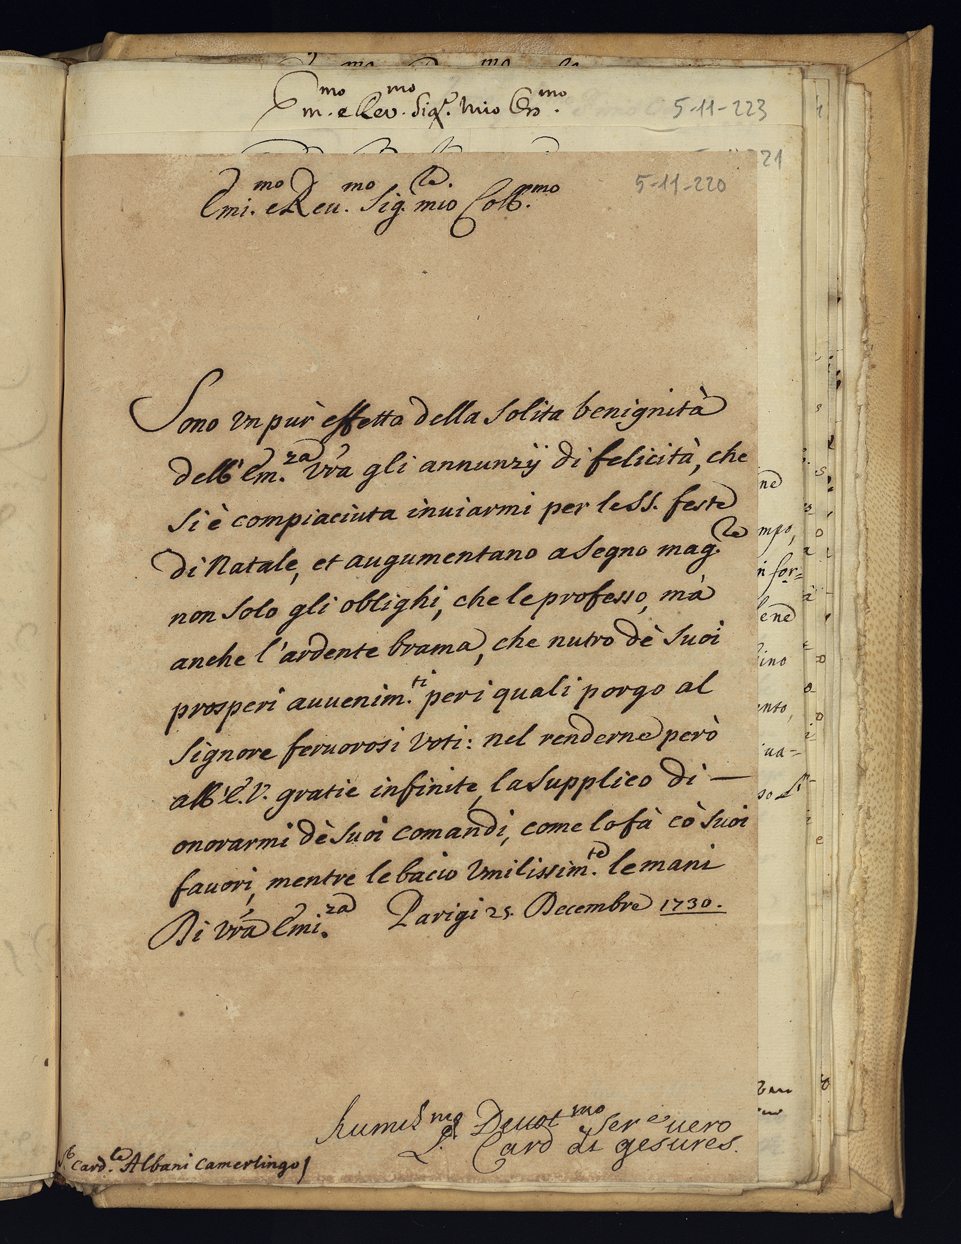 Em.mo e Rev.mo Sig.r Mio Oss.mo
5-11-223
21
5-11-220
Emi.mo e Reu.mo Sig.re mio Coll.mo
Sono un pur' effetto della solita benignità
dell' Em.za Vra gli annunzij di felicità, che
si è compiaciuta inuiarmi per le SS. feste
di Natale, et augumentano a segno mag.le
non solo gli oblighi, che le professo, mà
anche l'ardente brama, che nutro dè suoi
prosperi auuenim.ti per i quali porgo al
Signore feruorosi voti: nel renderne però
all' E. V. gratie infinite, la supplico di —
onorarmi dè suoi comandi, come lo fà cò suoi
fauori, mentre le bacio Vmilissim.te le mani
Di Vra Emi.za Parigi 25. Decembre 1730.
humil.mo et Deuot.mo Ser.e uero
L. Card di gesures.
Card.le Albani Camerlingo